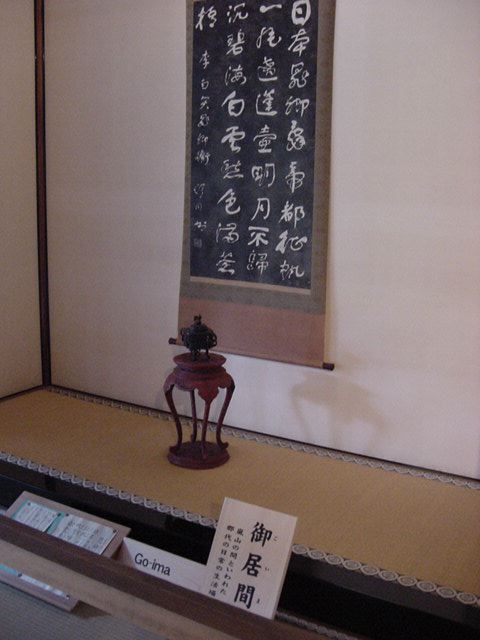 日本晁卿辭帝都征帆
一片遶蓬壺明月不歸
沉碧海白雲愁色滿蒼
梧 李白哭晁卿衡
御居間
ご い ま
嵐山の間といわれた
郡代の日常の生活場
Go-ima